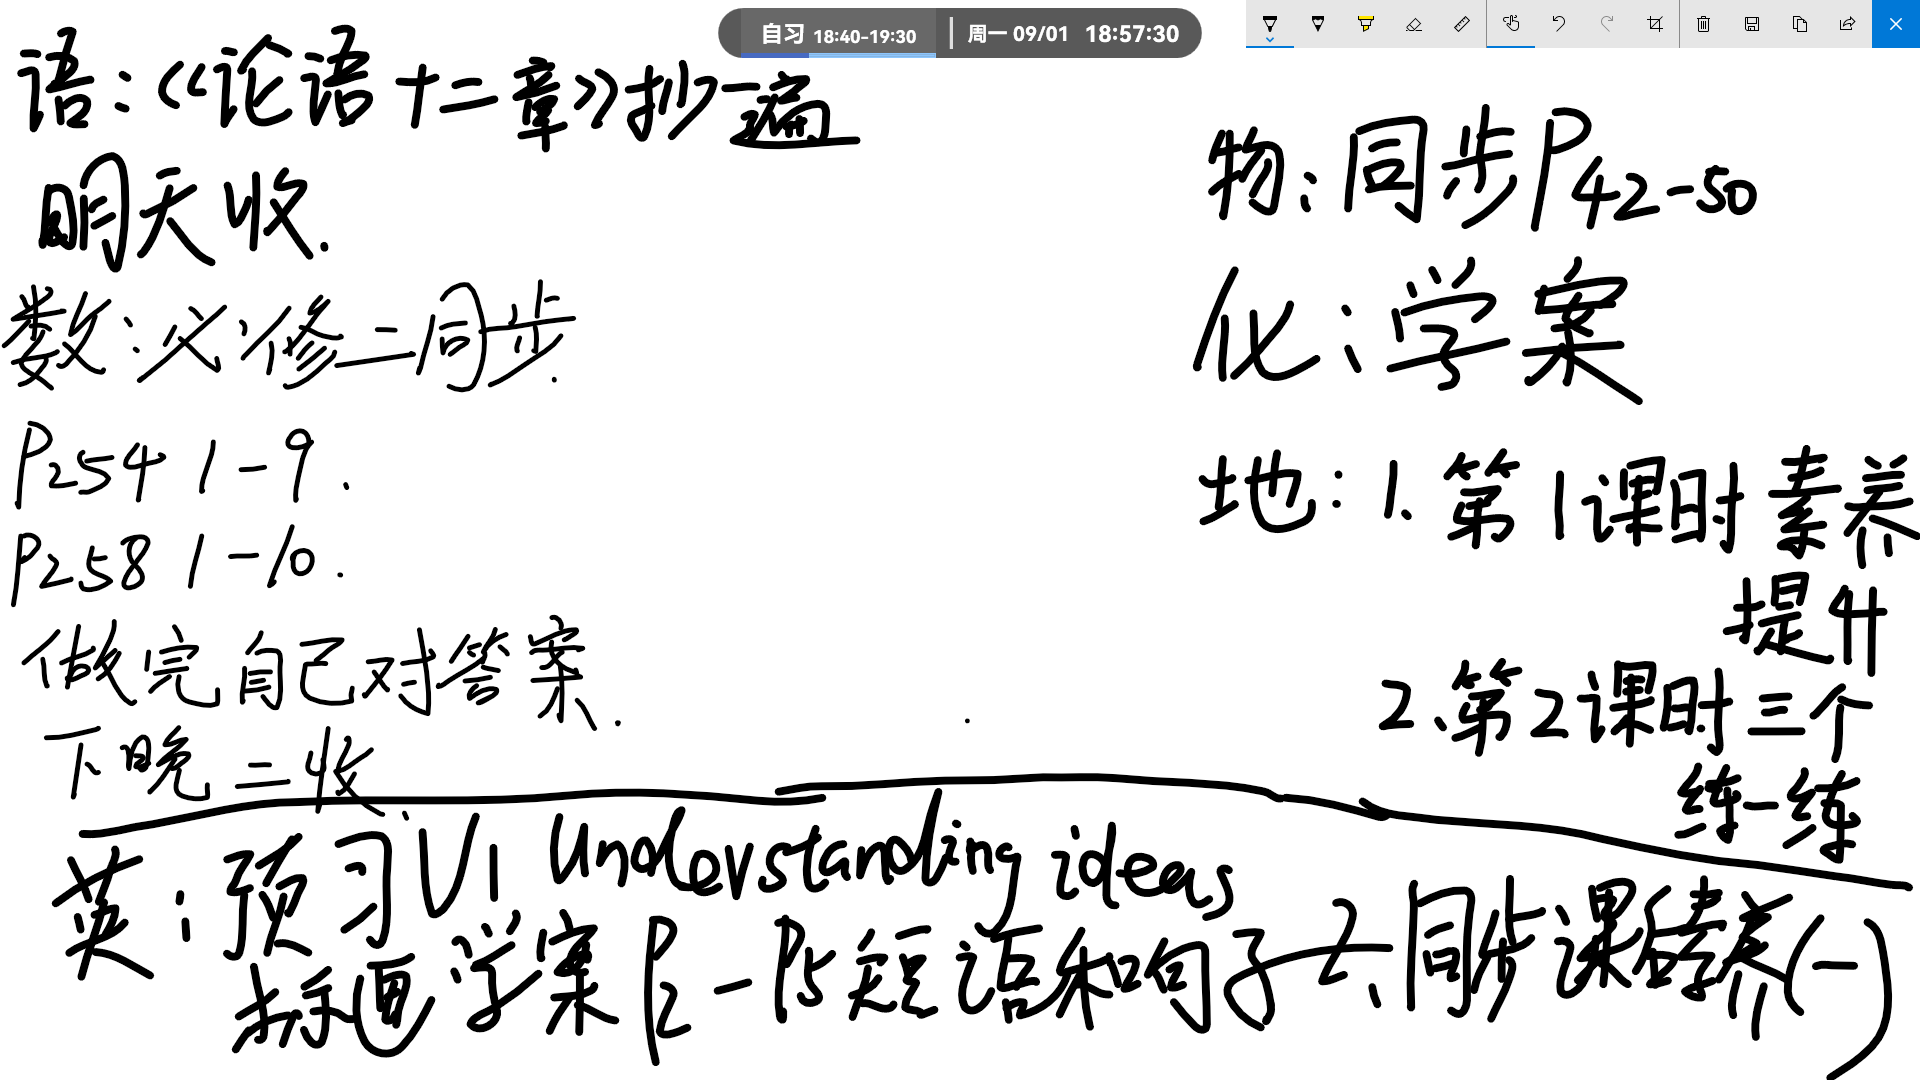 自习 18:40-19:30 周一 09/01 18:57:30
语:《论语十二章》抄一遍
明天收.
数:必修二同步.
P254 1-9.
P258 1-10.
做完自己对答案.
下晚二收.
物:同步P42-50
化:学案
地:1.第1课时素养
提升
2.第2课时三个
练一练
英:预习U1 Understanding ideas
标画学案P2-P5短语和句子 2.同步课后素养(一)